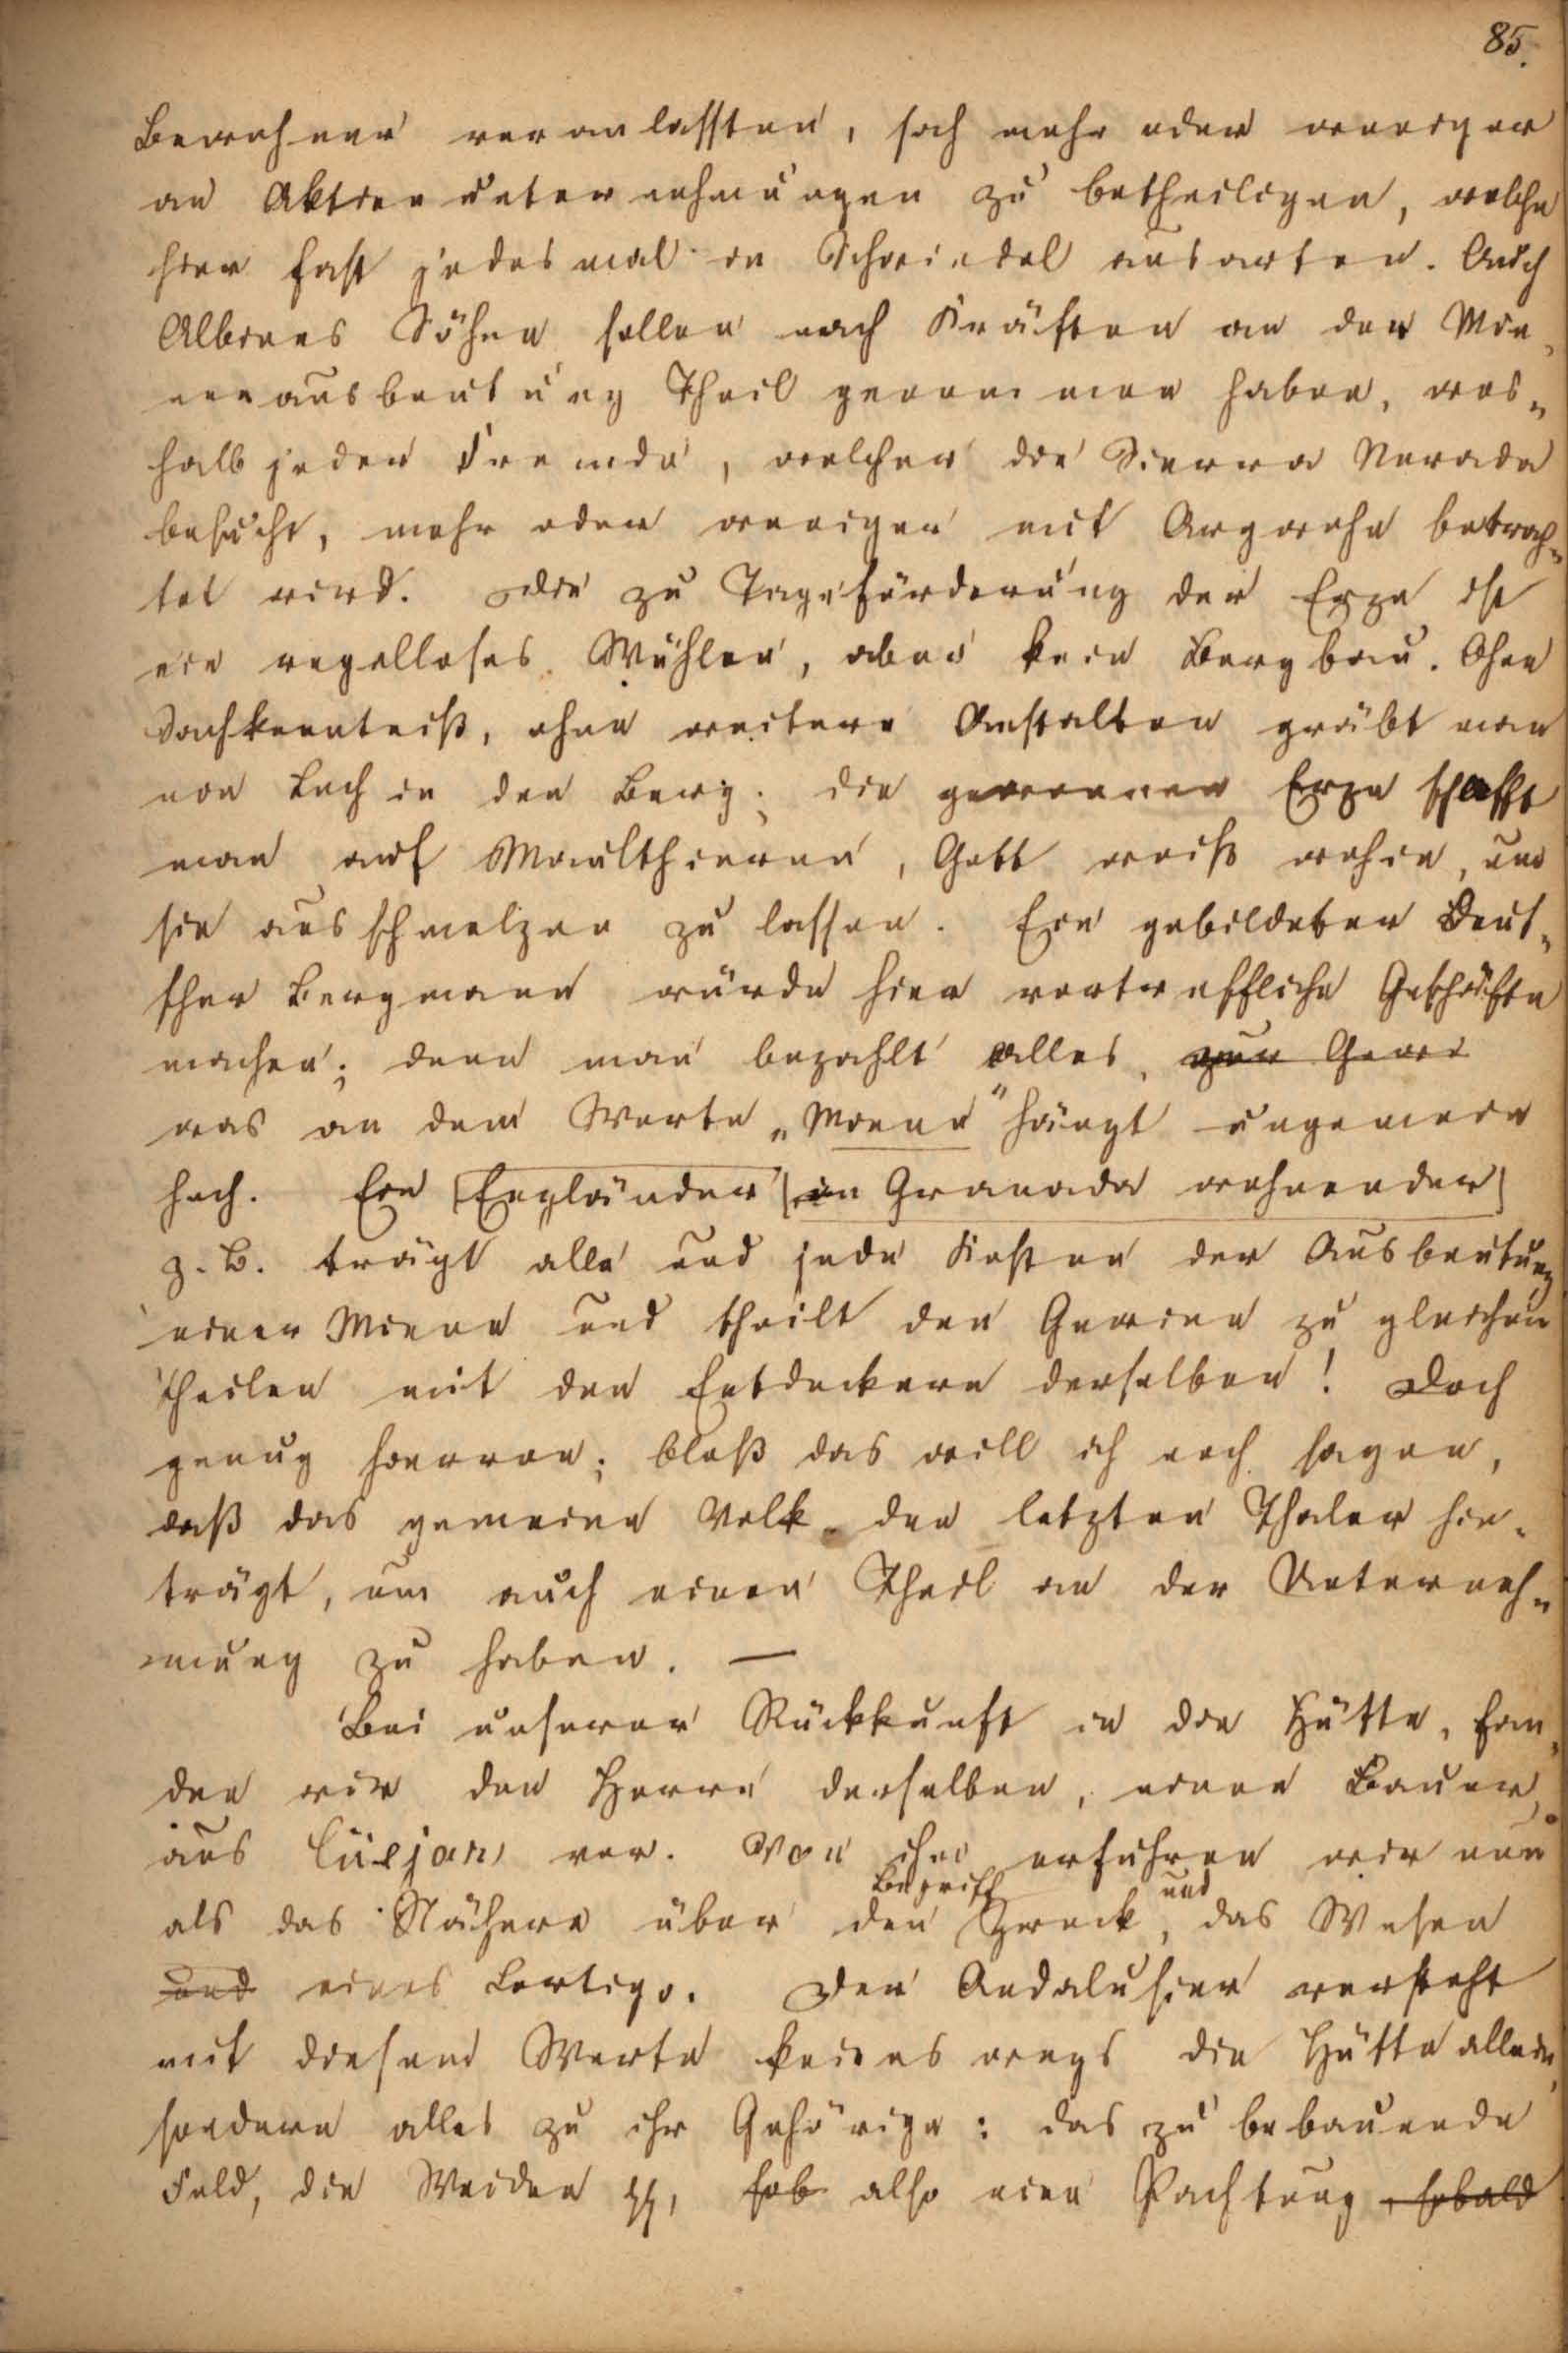 85.
Bewohner veranlassten, sich mehr oder weniger
an Aktienunternehmungen zu betheiligen, welche
hier fast jedesmal in Schwindel ausarten. Auch
Albions Söhne sollen nach Kräften an der Mi¬
nenausbeutung Theil genommen haben, wes¬
halb jeder Fremde, welcher die Sierra Nevada
besucht, mehr oder weniger mit Argwohn betrach¬
tet wird. Die zu Tageförderung der Erze ist
ein regelloses Wühlen, aber kein Bergbau. Ohne
Sachkenntniß, ohne weitere Anstalten gräbt man
ein Loch in den Berg; die gewonnen Erze schafft
man auf Maulthieren, Gott weiß wohin, um
sie ausschmelzen zu lassen. Ein gebildeter Deut¬
scher Bergmann würde hier vortreffliche Geschäfte
machen; denn man bezahlt alles, zum Gewi
was an dem Worte „Miene" hängt ungemein
hoch. Ein Engländer in Granada wohnender
z. B. trägt alle und jede Kosten der Ausbeutung
einer Miene und theilt den Gewinn zu gleichen
Theilen mit den Entdeckern derselben! Doch
genug hiervon; bloß das will ich noch sagen,
daß das gemeine Volk den letzten Thaler hin¬
trägt, um auch einen Theil an der Unterneh¬
mung zu haben. —
Bei unserer Rückkunft in die Hütte, fan¬
den wir den Herrn derselben, einen Bauer,
aus Cüejar, vor. Von ihm erfuhren wir nun
Begriff und
als das Nähere über den Zweck, das Wesen
und eines Cortigo. Der Andalusier versteht
mit diesem Worte keineswegs die Hütte allein,
sondern alles zu ihr Gehörige: das zu bebauende
Feld, die Weiden pp, sob also eine Pachtung, sobald